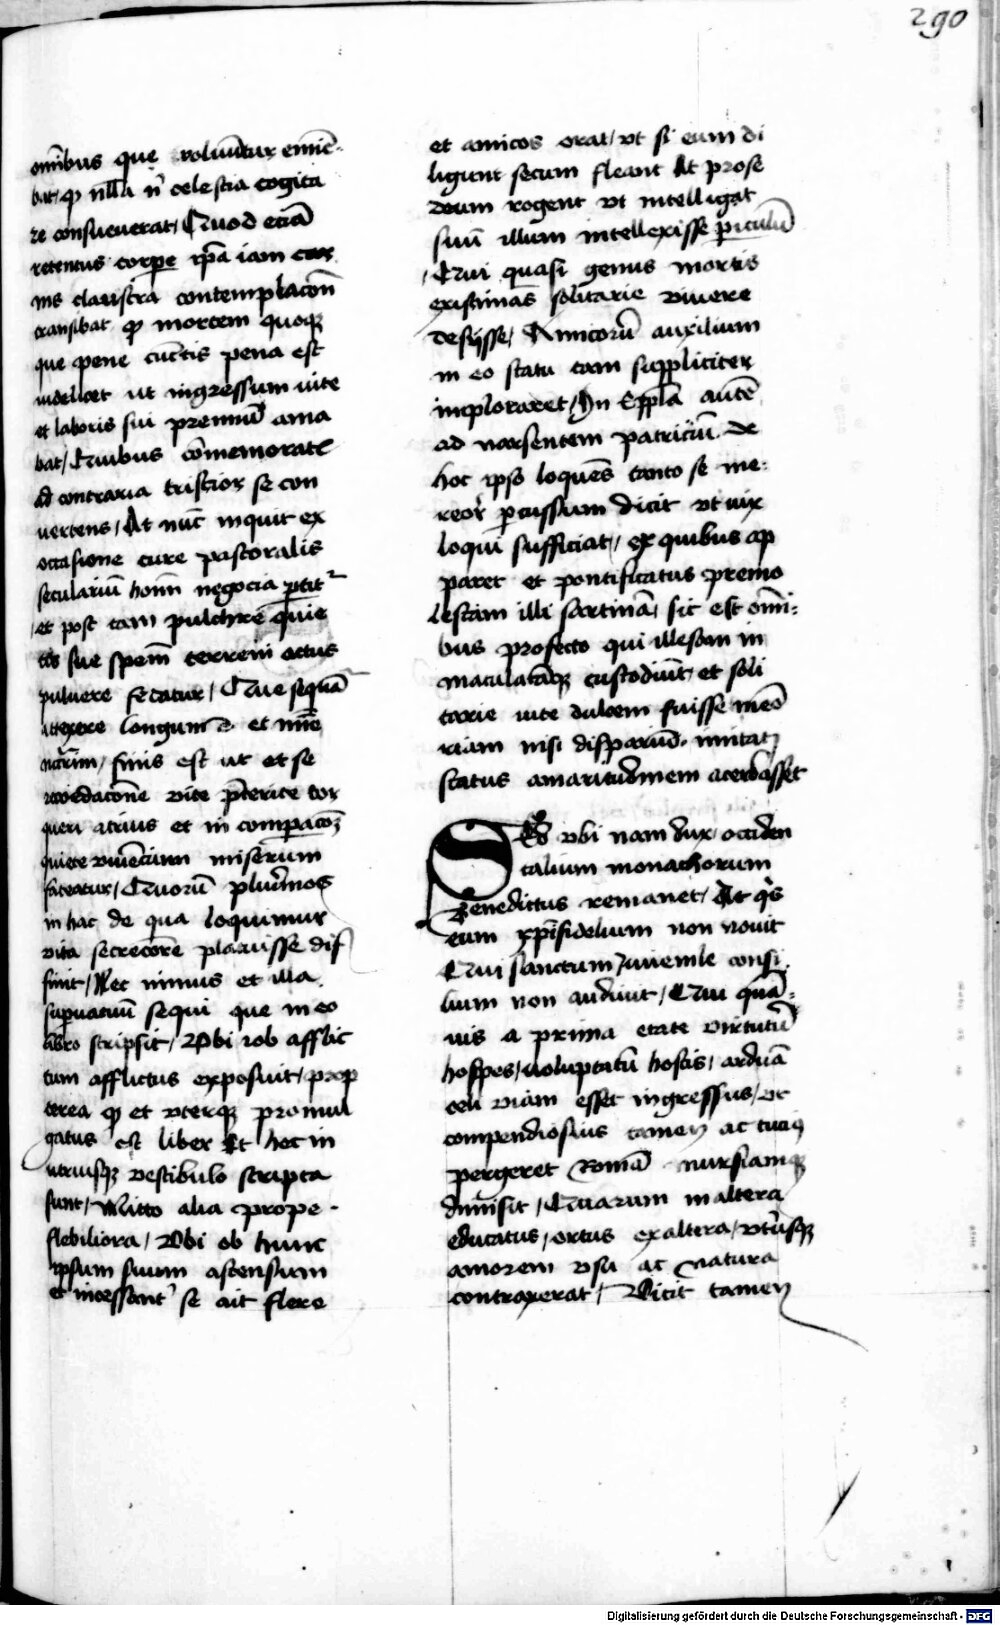 290
om̄ibus que voluūtur emīe-
bat / ꝙ nlla nˢ celestia cogita
re consueuerat / Quod eciā
retentus corpe ipa iam car
nis claustra contemplacōn
transibat ꝙ mortem quoqꝫ
que pene cūctis pena est
videlicet ut ingressum uite
et laboris sui premiū ama
bat / Quibus cōmemoratꝭ
ad contraria tristior se con
uertens / At nūc inquit ex
occasione cure pastoralis
seculariū hoīm negocia ꝑtitʳ
et post tam pulchre quie
tis sue speīn terreni actus
puluere fedatur / Que sequā
attexere longum ē et mīe
necessariū / finis est ut et se
recordacōne vite p̄terite tor
queri acrius et in comparacōꝫ
quiete viuenciū miserum
fateatur / Quorū plurimos
in hac de qua loquimur
vita secrecōre placuisse dif
finit / Nec minus et illa
supuacuū sequi que in eo
libro scripsit / Vbi iob afflic
tum afflictus exposuit / prop
terea ꝙ et vterqꝫ promul
gatus est liber Et hec in
utriusqꝫ vestibulo scripta
sunt / Mitto alia prope
flebiliora / Vbi ob hunc
ipsum suum ascensum
et incessantˢ se ait flere
et amicos orat / vt si eum di
ligunt secum fleant At pro se
deum rogent vt intelligat
suū illum intellexisse piculū
/ Qui quasi genus mortis
existimās solitarie viuere
desijsse / Amicorū auxilium
in eo statu tam suppliciter
imploraret / In Eppla autē
ad narsentem patriciū. de
hoc ipso loquēs tanto se me-
reoʳ ꝑcussum dicit vt uix
loqui sufficiat / ex quibus ap
paret et pontificatus premo
lestam illi sartinā / sic est om̄i-
bus profecto qui illesam in
maculatāqꝫ custodiūt et soli
tarie uite dulcem fuisse meō
riam nisi dispariū. imitatꝫ
status amaritudinem acerbasset
SEd vbi nam dux occiden
talium monachorum
Benedictus remanet / At qˢs
eum xp̄ifidelium non nouit
Qui sanctum Juuenile consi
lium non audiuit / Qui quā-
uis a prima etate virtutū
hospes / uoluptatū hostis / arduā
celi viam esset ingressus / vt
compendiosius tamen ac tuciꝯ
pergeret Romā nursiamqꝫ
dimisit / Quarum in altera
educatus / ortus ex altera / vtriusqꝫ
amorem vsu ac natura
contraxerat / Dicit tamen
Digitalisierung gefördert durch die Deutsche Forschungsgemeinschaft - DFG